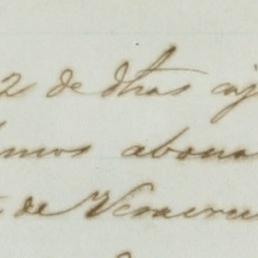 2 de dhas caj
mos abona
de Veracru